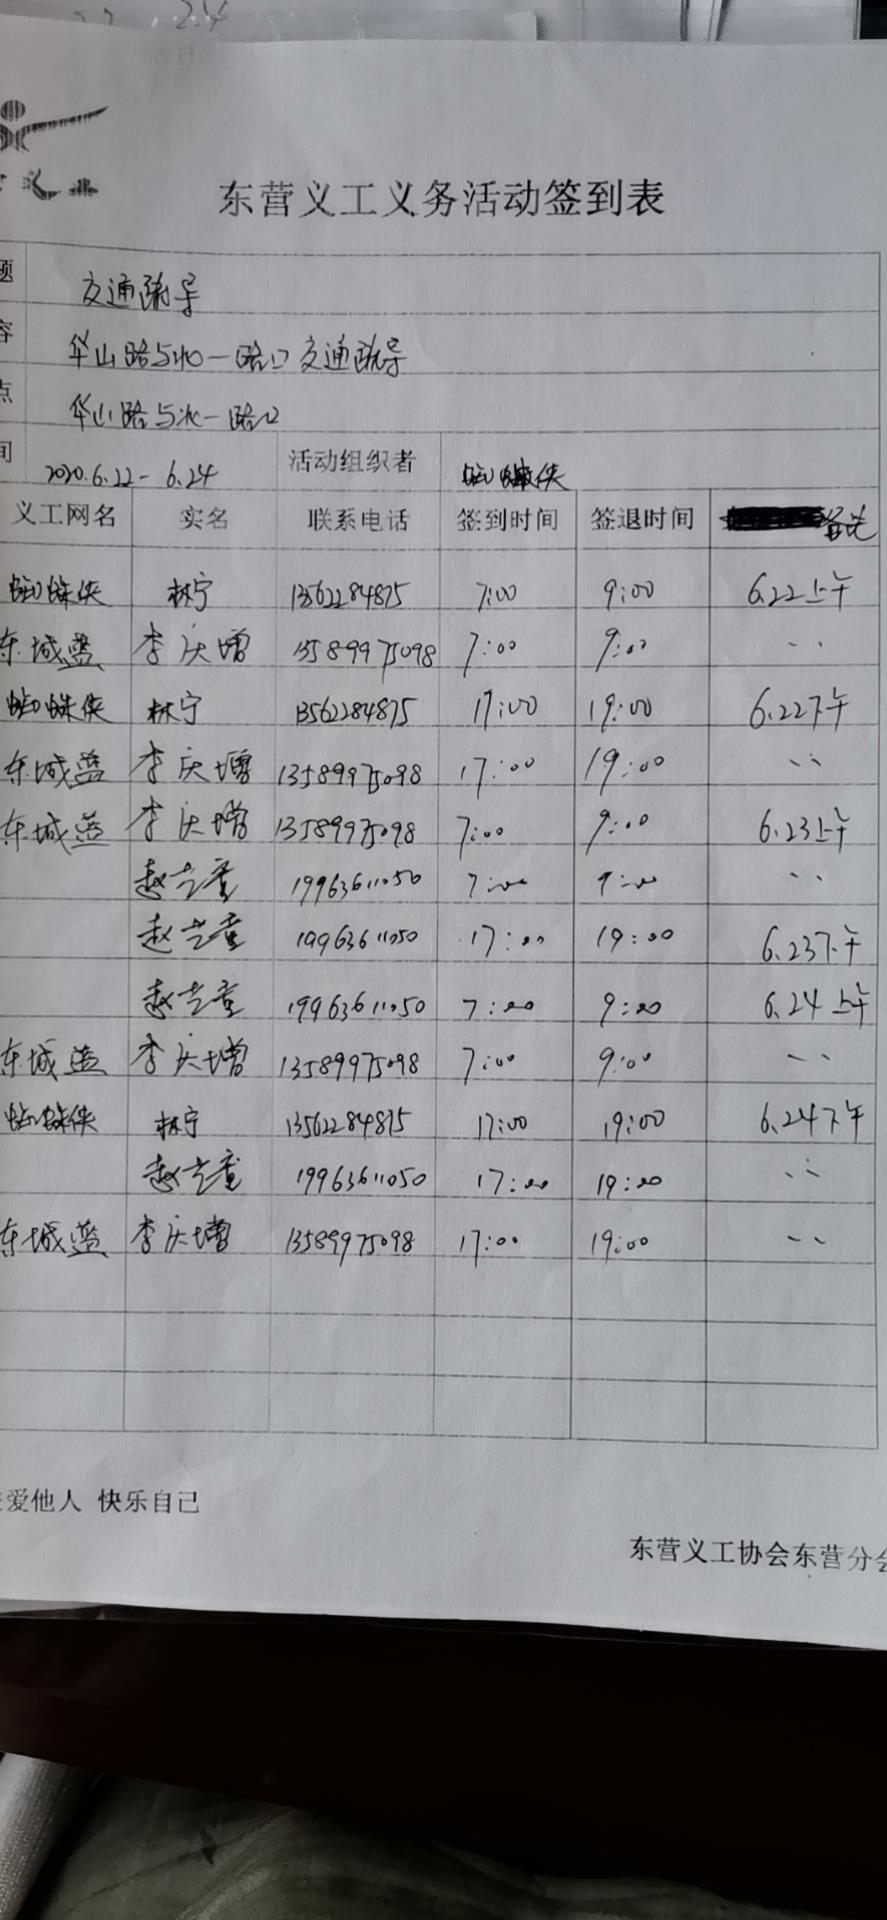 东营义工义务活动签到表
题 交通疏导
容 华山路与北一路口交通疏导
点 华山路与北一路口
间 2020.6.22-6.24 活动组织者 蜘蛛侠
义工网名 实名 联系电话 签到时间 签退时间 备注
蜘蛛侠 林宁 13562284875 7:00 9:00 6.22上午
东城蓝 李庆增 13589975098 7:00 9:00 、、
蜘蛛侠 林宁 13562284875 17:00 19:00 6.22下午
东城蓝 李庆增 13589975098 17:00 19:00 、、
东城蓝 李庆增 13589975098 7:00 9:00 6.23上午
赵 19963611050 7:00 9:00 、、
赵 19963611050 17:00 19:00 6.23下午
赵 19963611050 7:00 9:00 6.24上午
东城蓝 李庆增 13589975098 7:00 9:00 、、
蜘蛛侠 林宁 13562284875 17:00 19:00 6.24下午
赵 19963611050 17:00 19:00 、、
东城蓝 李庆增 13589975098 17:00 19:00 、、
爱他人 快乐自己
东营义工协会东营分会